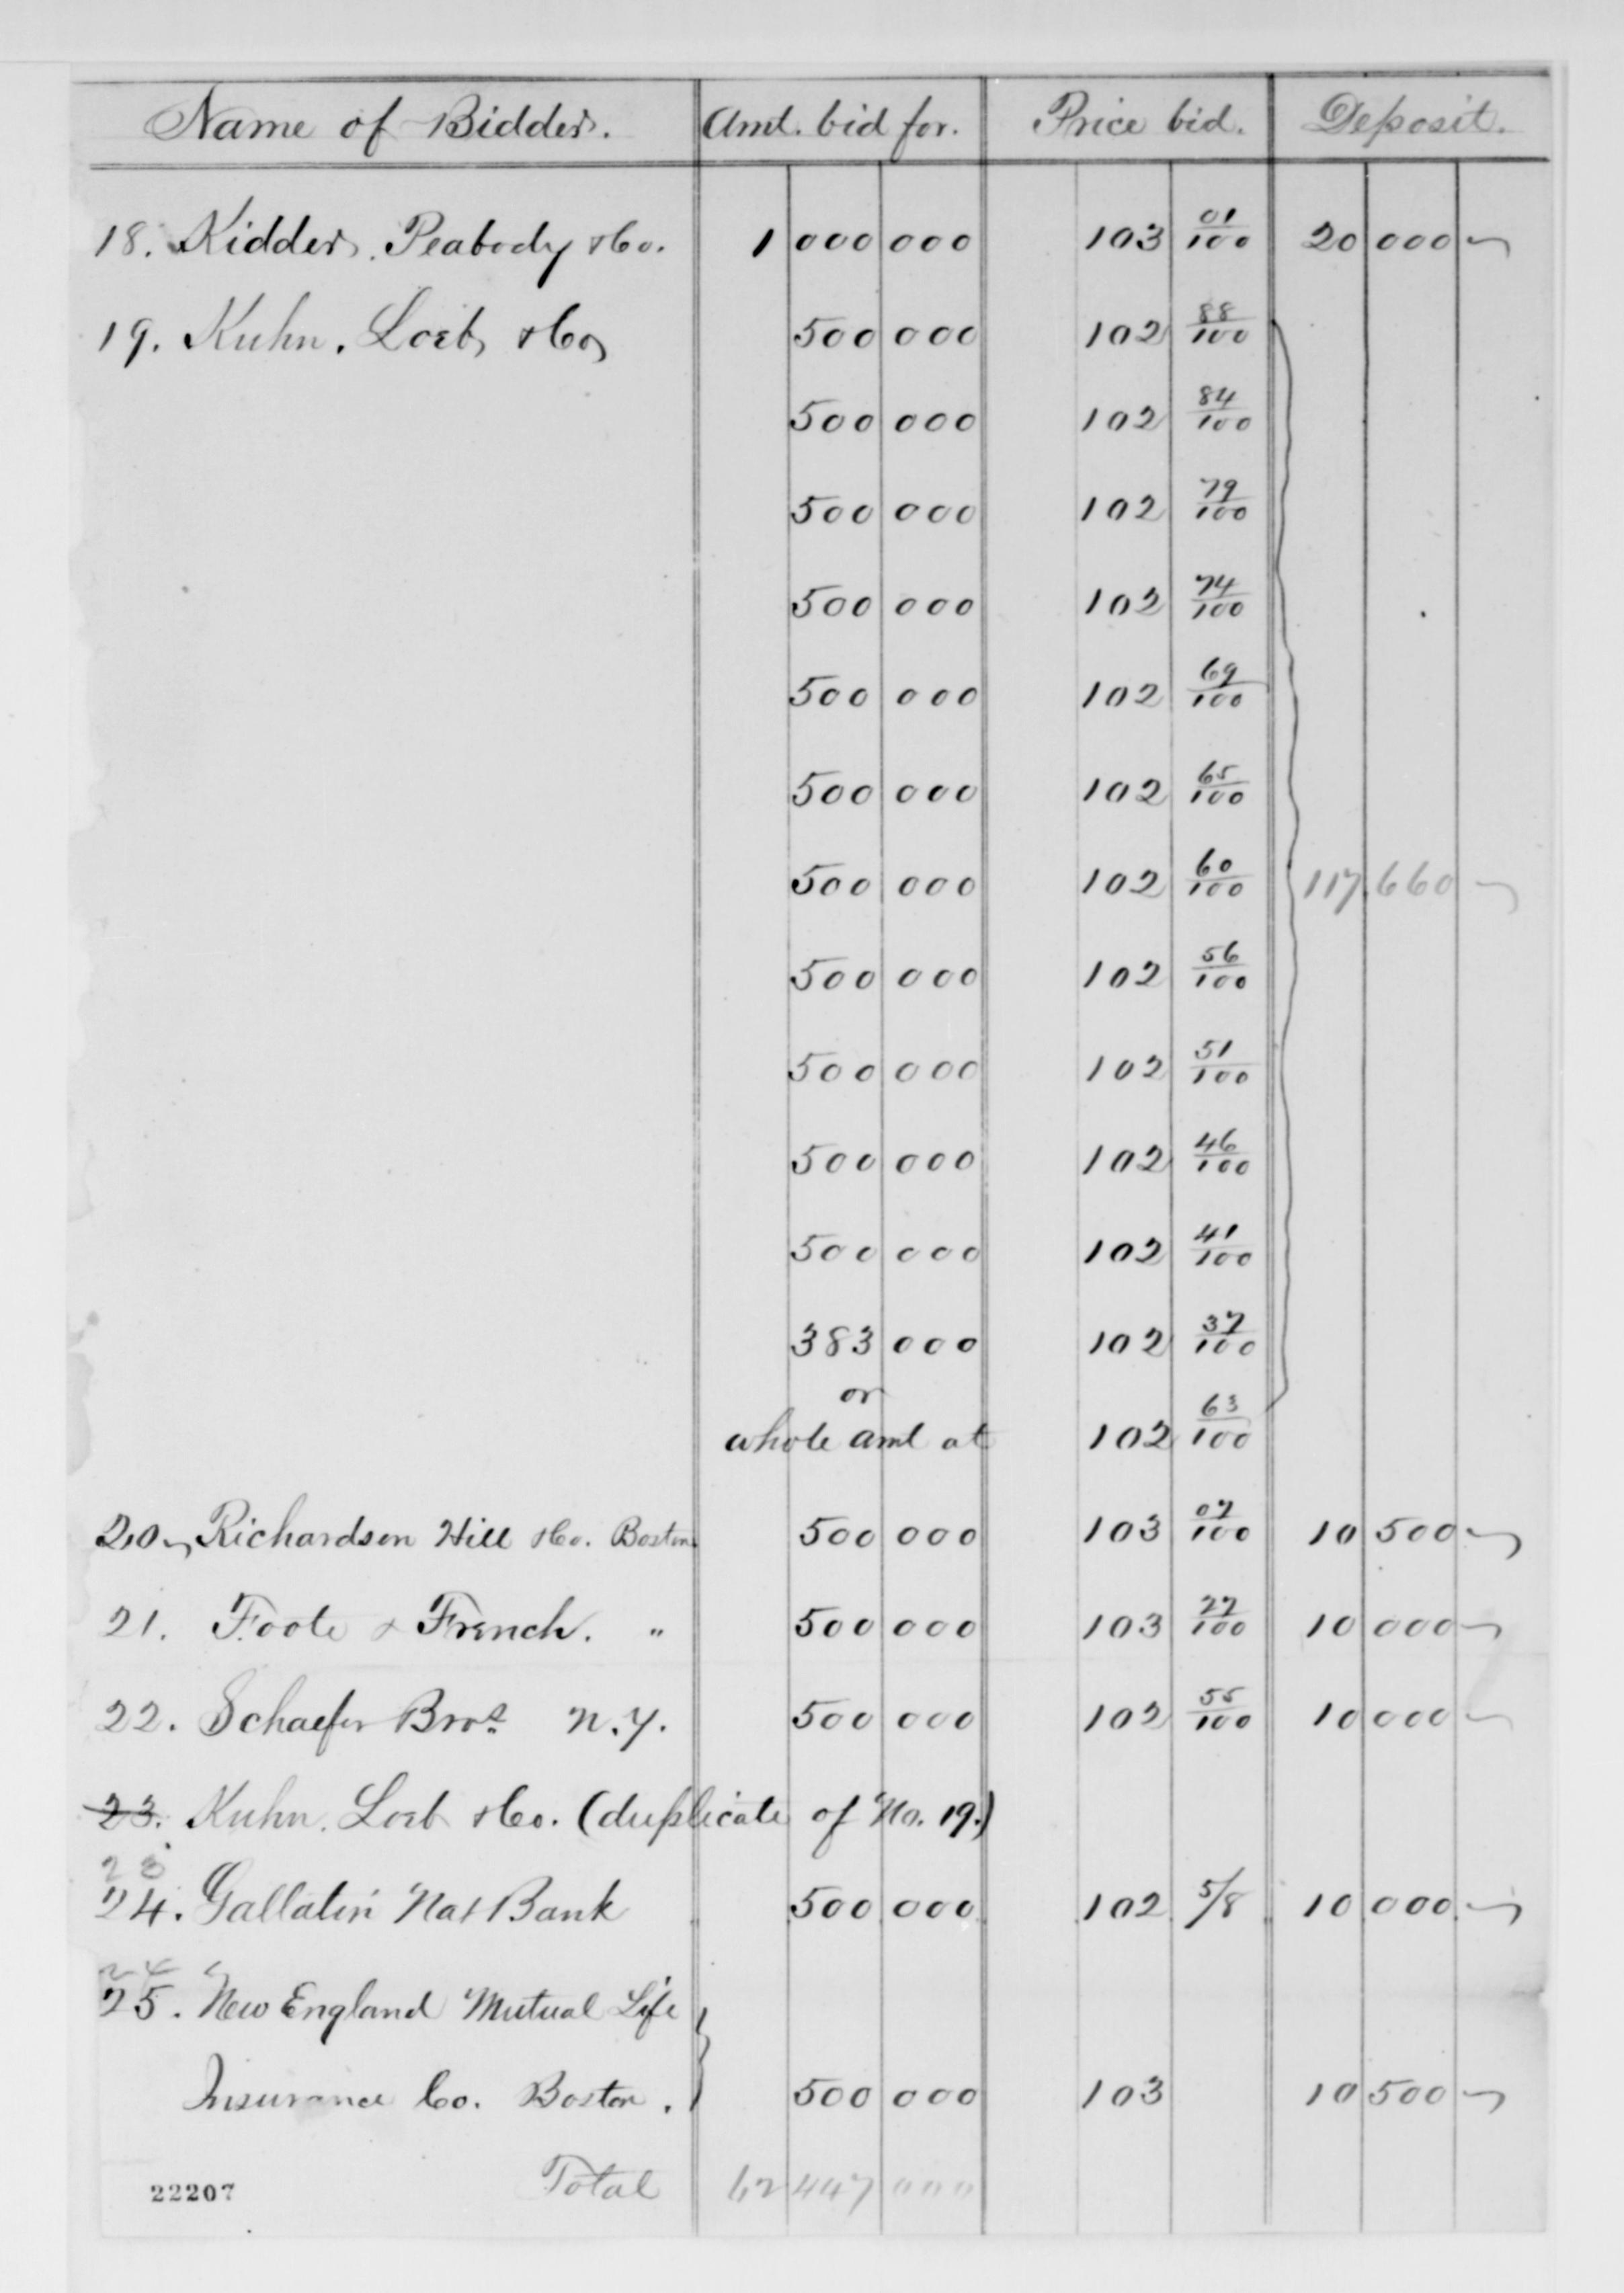 Name of Bidder. Amt. bid for. Price bid. Deposit.
18. Kidder, Peabody & Co. 1 000 000 103 01/100 20 000
19. Kuhn, Loeb & Co 500 000 102 88/100
500 000 102 84/100
500 000 102 79/100
500 000 102 74/100
500 000 102 69/100
500 000 102 65/100
500 000 102 60/100 117 660
500 000 102 56/100
500 000 102 51/100
500 000 102 46/100
500 000 102 41/100
383 000 102 37/100
or
whole amt at 102 63/100
20. Richardson Hill & Co. Boston 500 000 103 07/100 10 500
21. Foote & French. " 500 000 103 27/100 10 000
22. Schaefer Bros. N.Y. 500 000 102 55/100 10 000
23. Kuhn, Loeb & Co. (duplicate of No. 19.)
23
24. Gallatin Nat Bank 500 000 102 5/8 10 000
24
25. New England Mutual Life
Insurance Co. Boston. 500 000 103 10 500
Total 62 447 000
22207